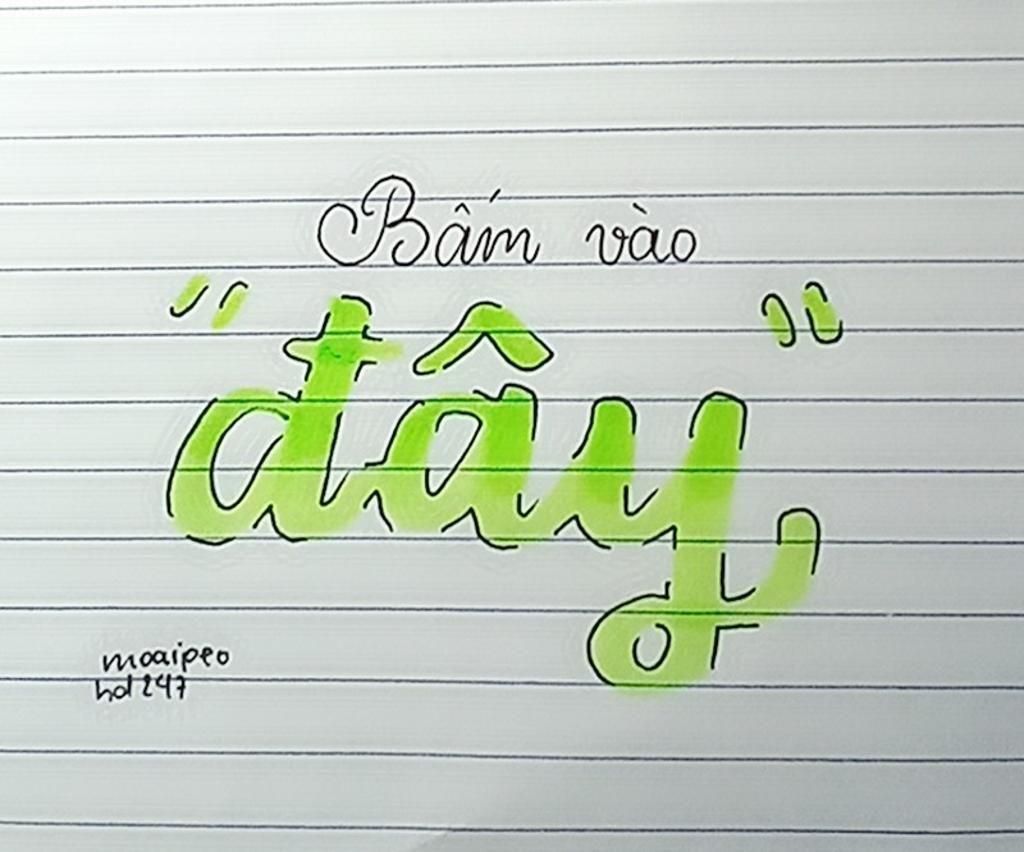 Bấm vào
"đây"
moaipeo
hd247